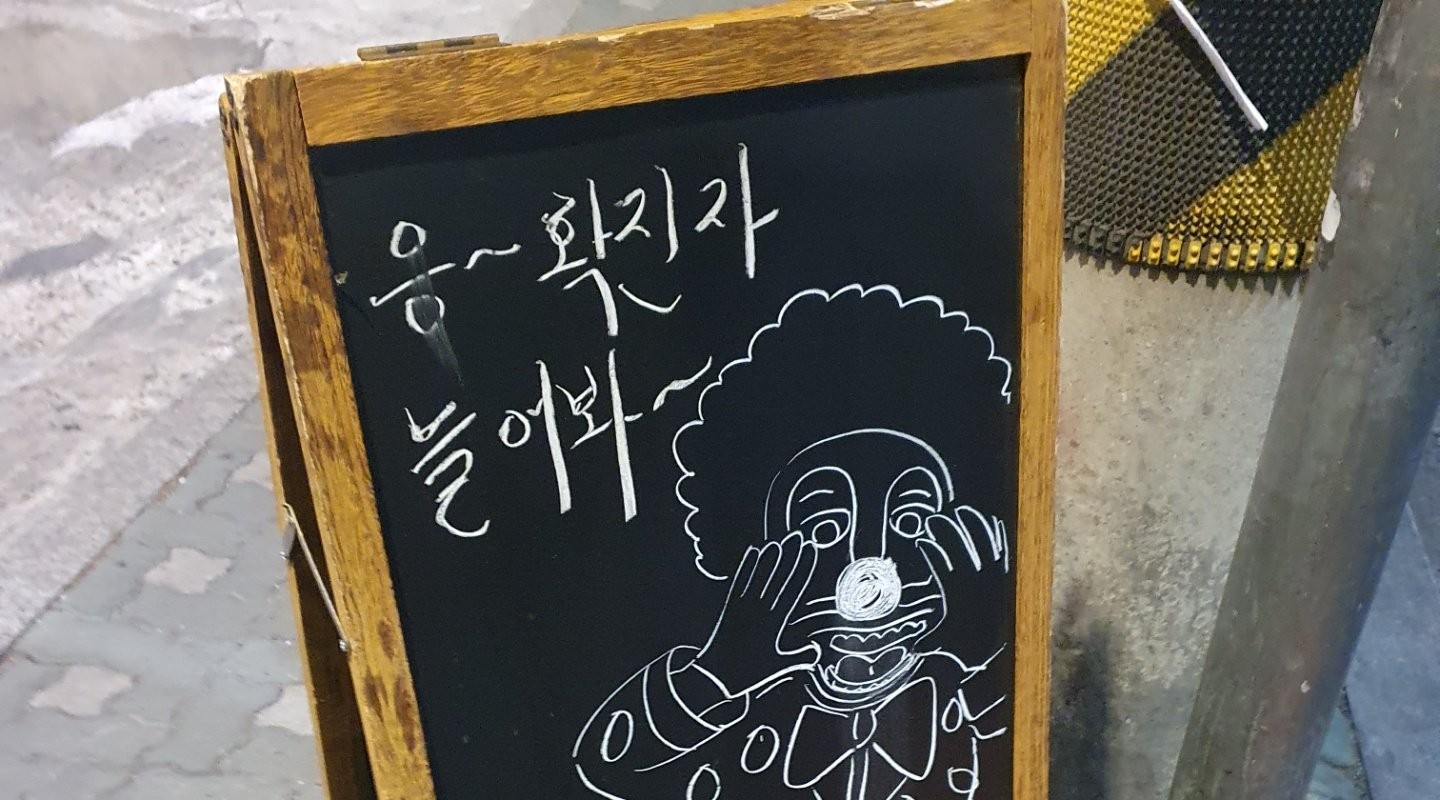 응~확진자
늘어봐~